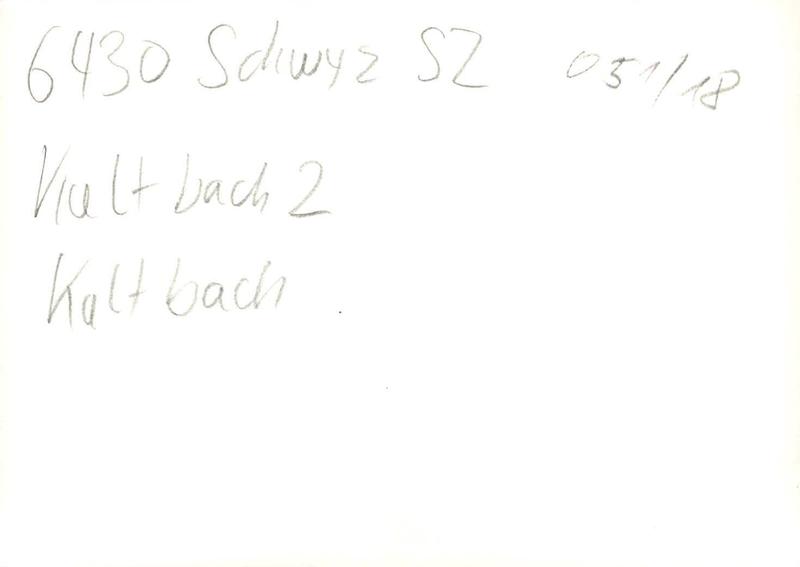 6430 Schwyz SZ 051/18
Kaltbach 2
Kaltbach